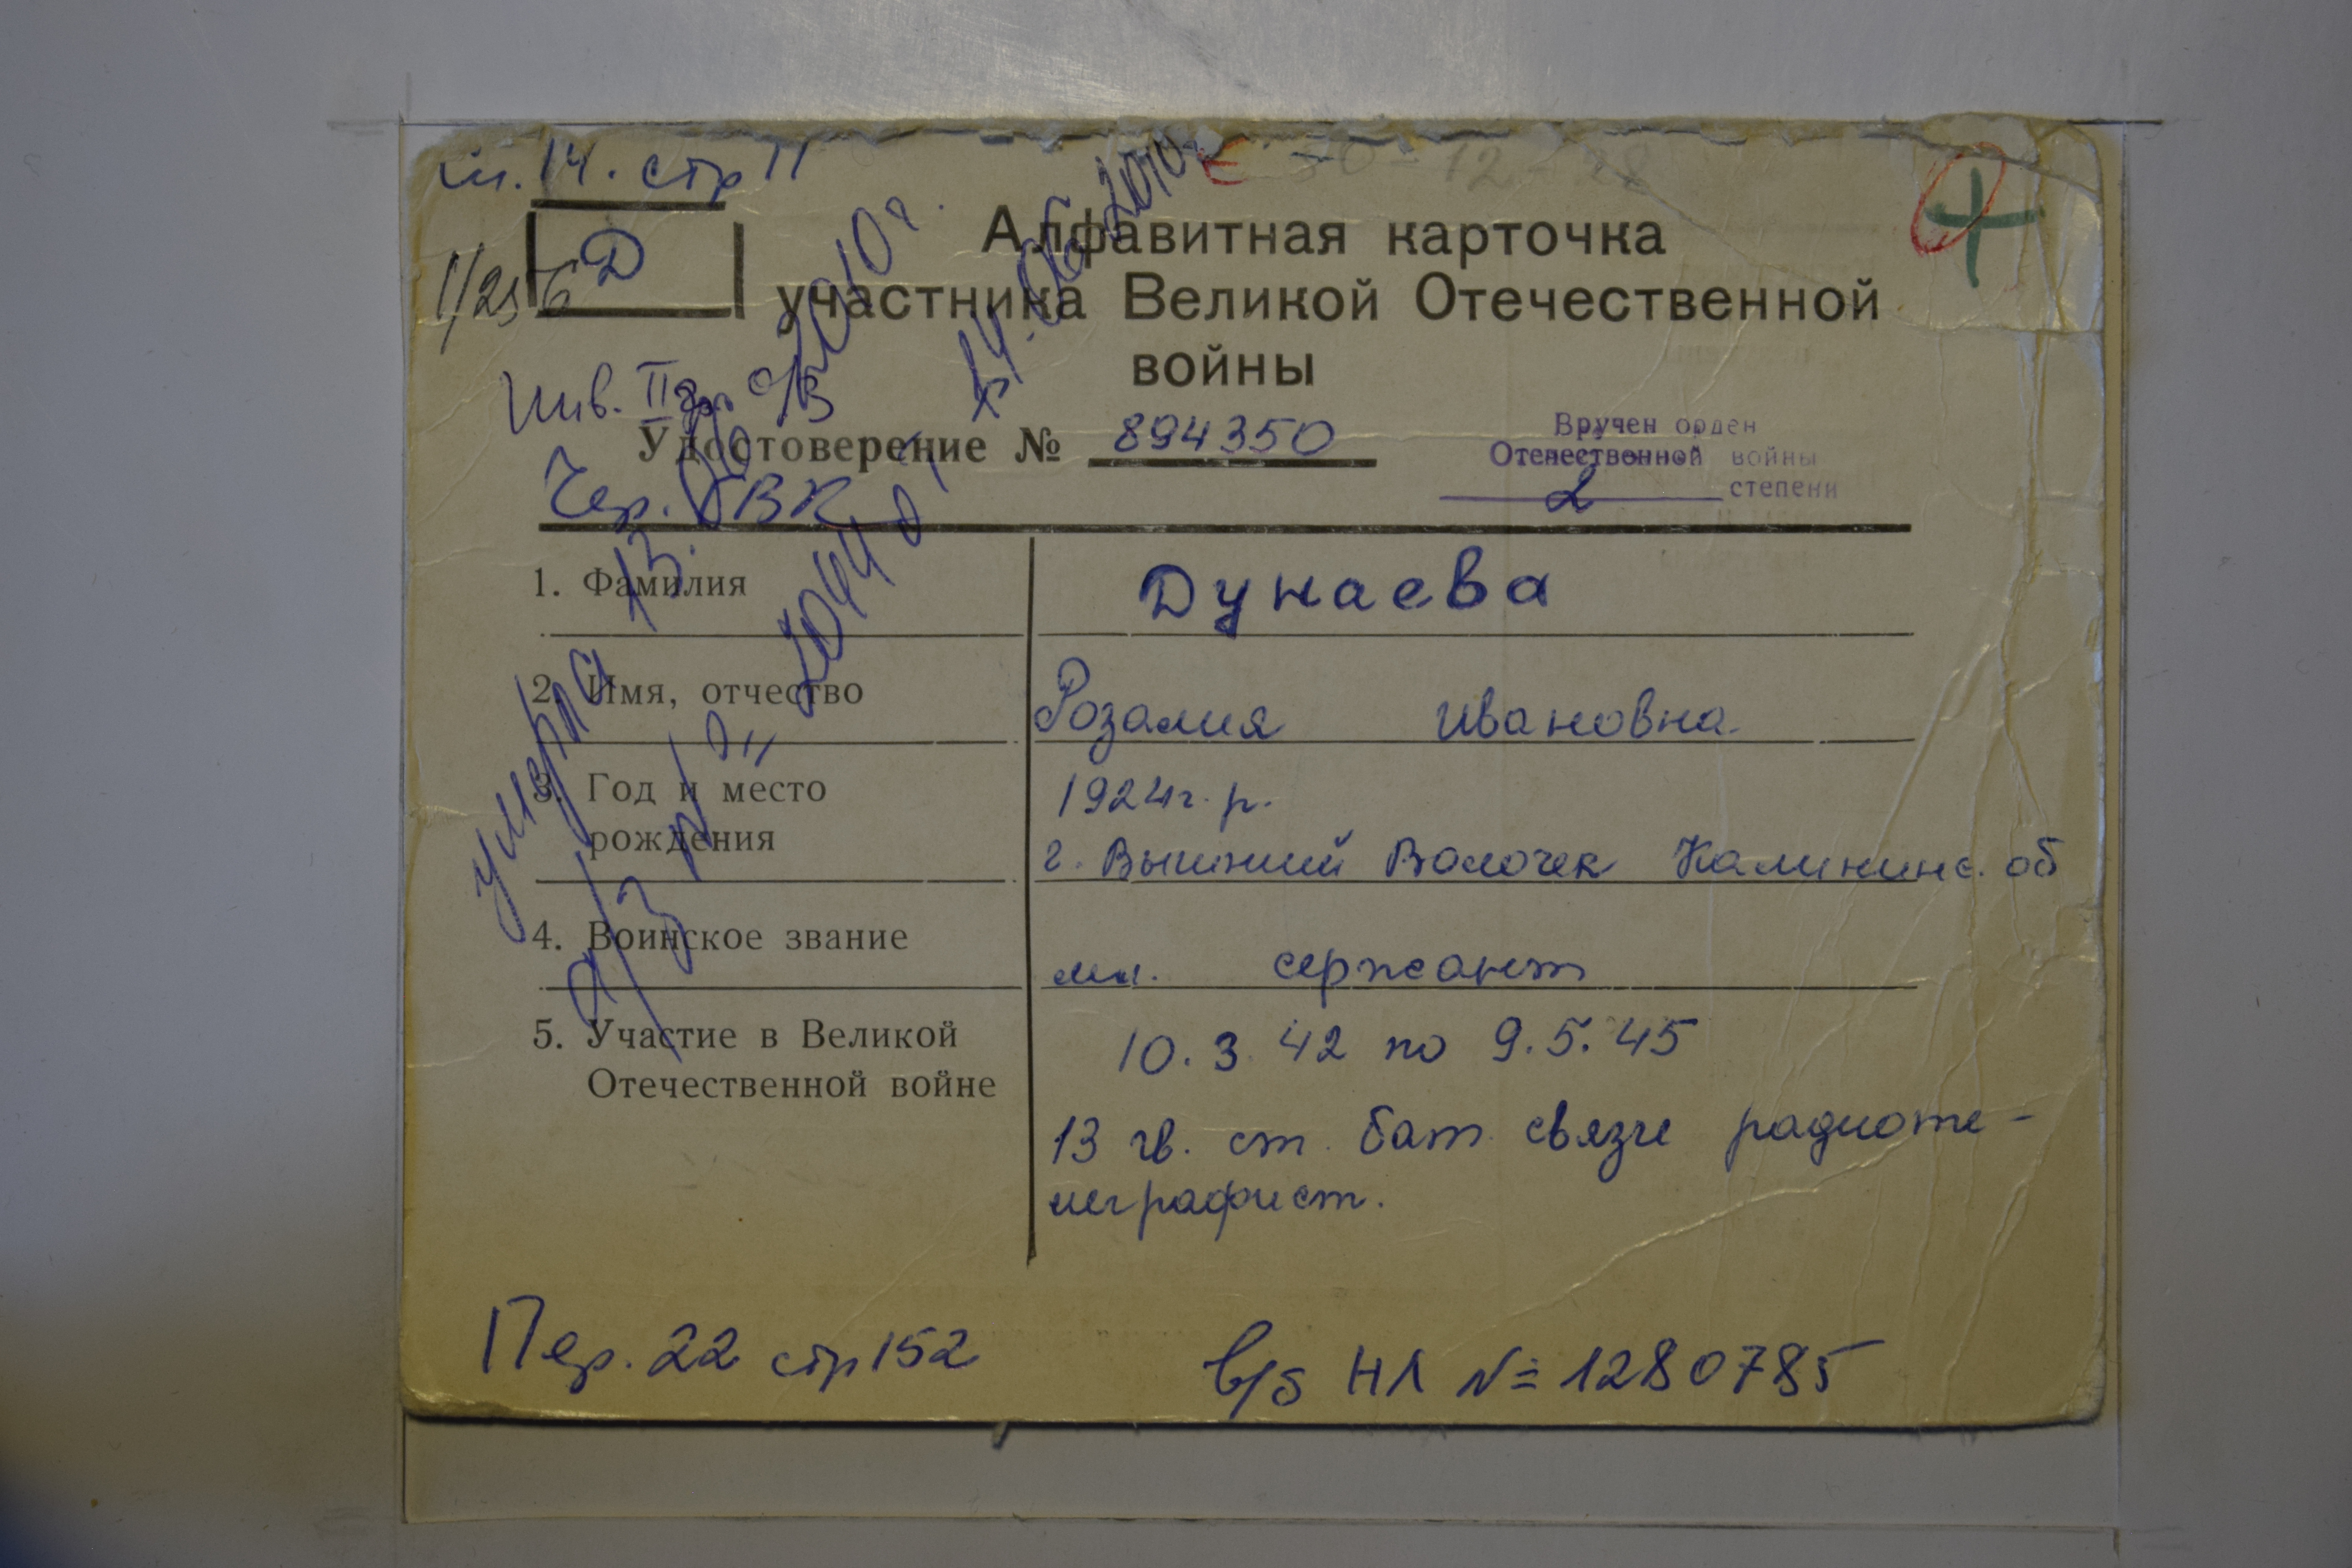 стр 11
Д
Алфавитная карточка
участника Великой Отечественной
войны
Инв. II гр. о/з
Удостоверение № 894350
Вручен орден
Отечественной войны
2 степени
Чер. РВК
1. Фамилия Дунаева
2. Имя, отчество Розалия Ивановна
3. Год и место
рождения
1924 г. р.
г. Вышний Волочек Калининс. об
4. Воинское звание мл. сержант
5. Участие в Великой
Отечественной войне
10.3.42 по 9.5.45
13 гв. ст. бат связи радиоте-
леграфист.
умерла 13. 2010 г.
а/з № 10441 от 14.06.2010
Пер. 22 стр 152
в/б НЛ № 1280785